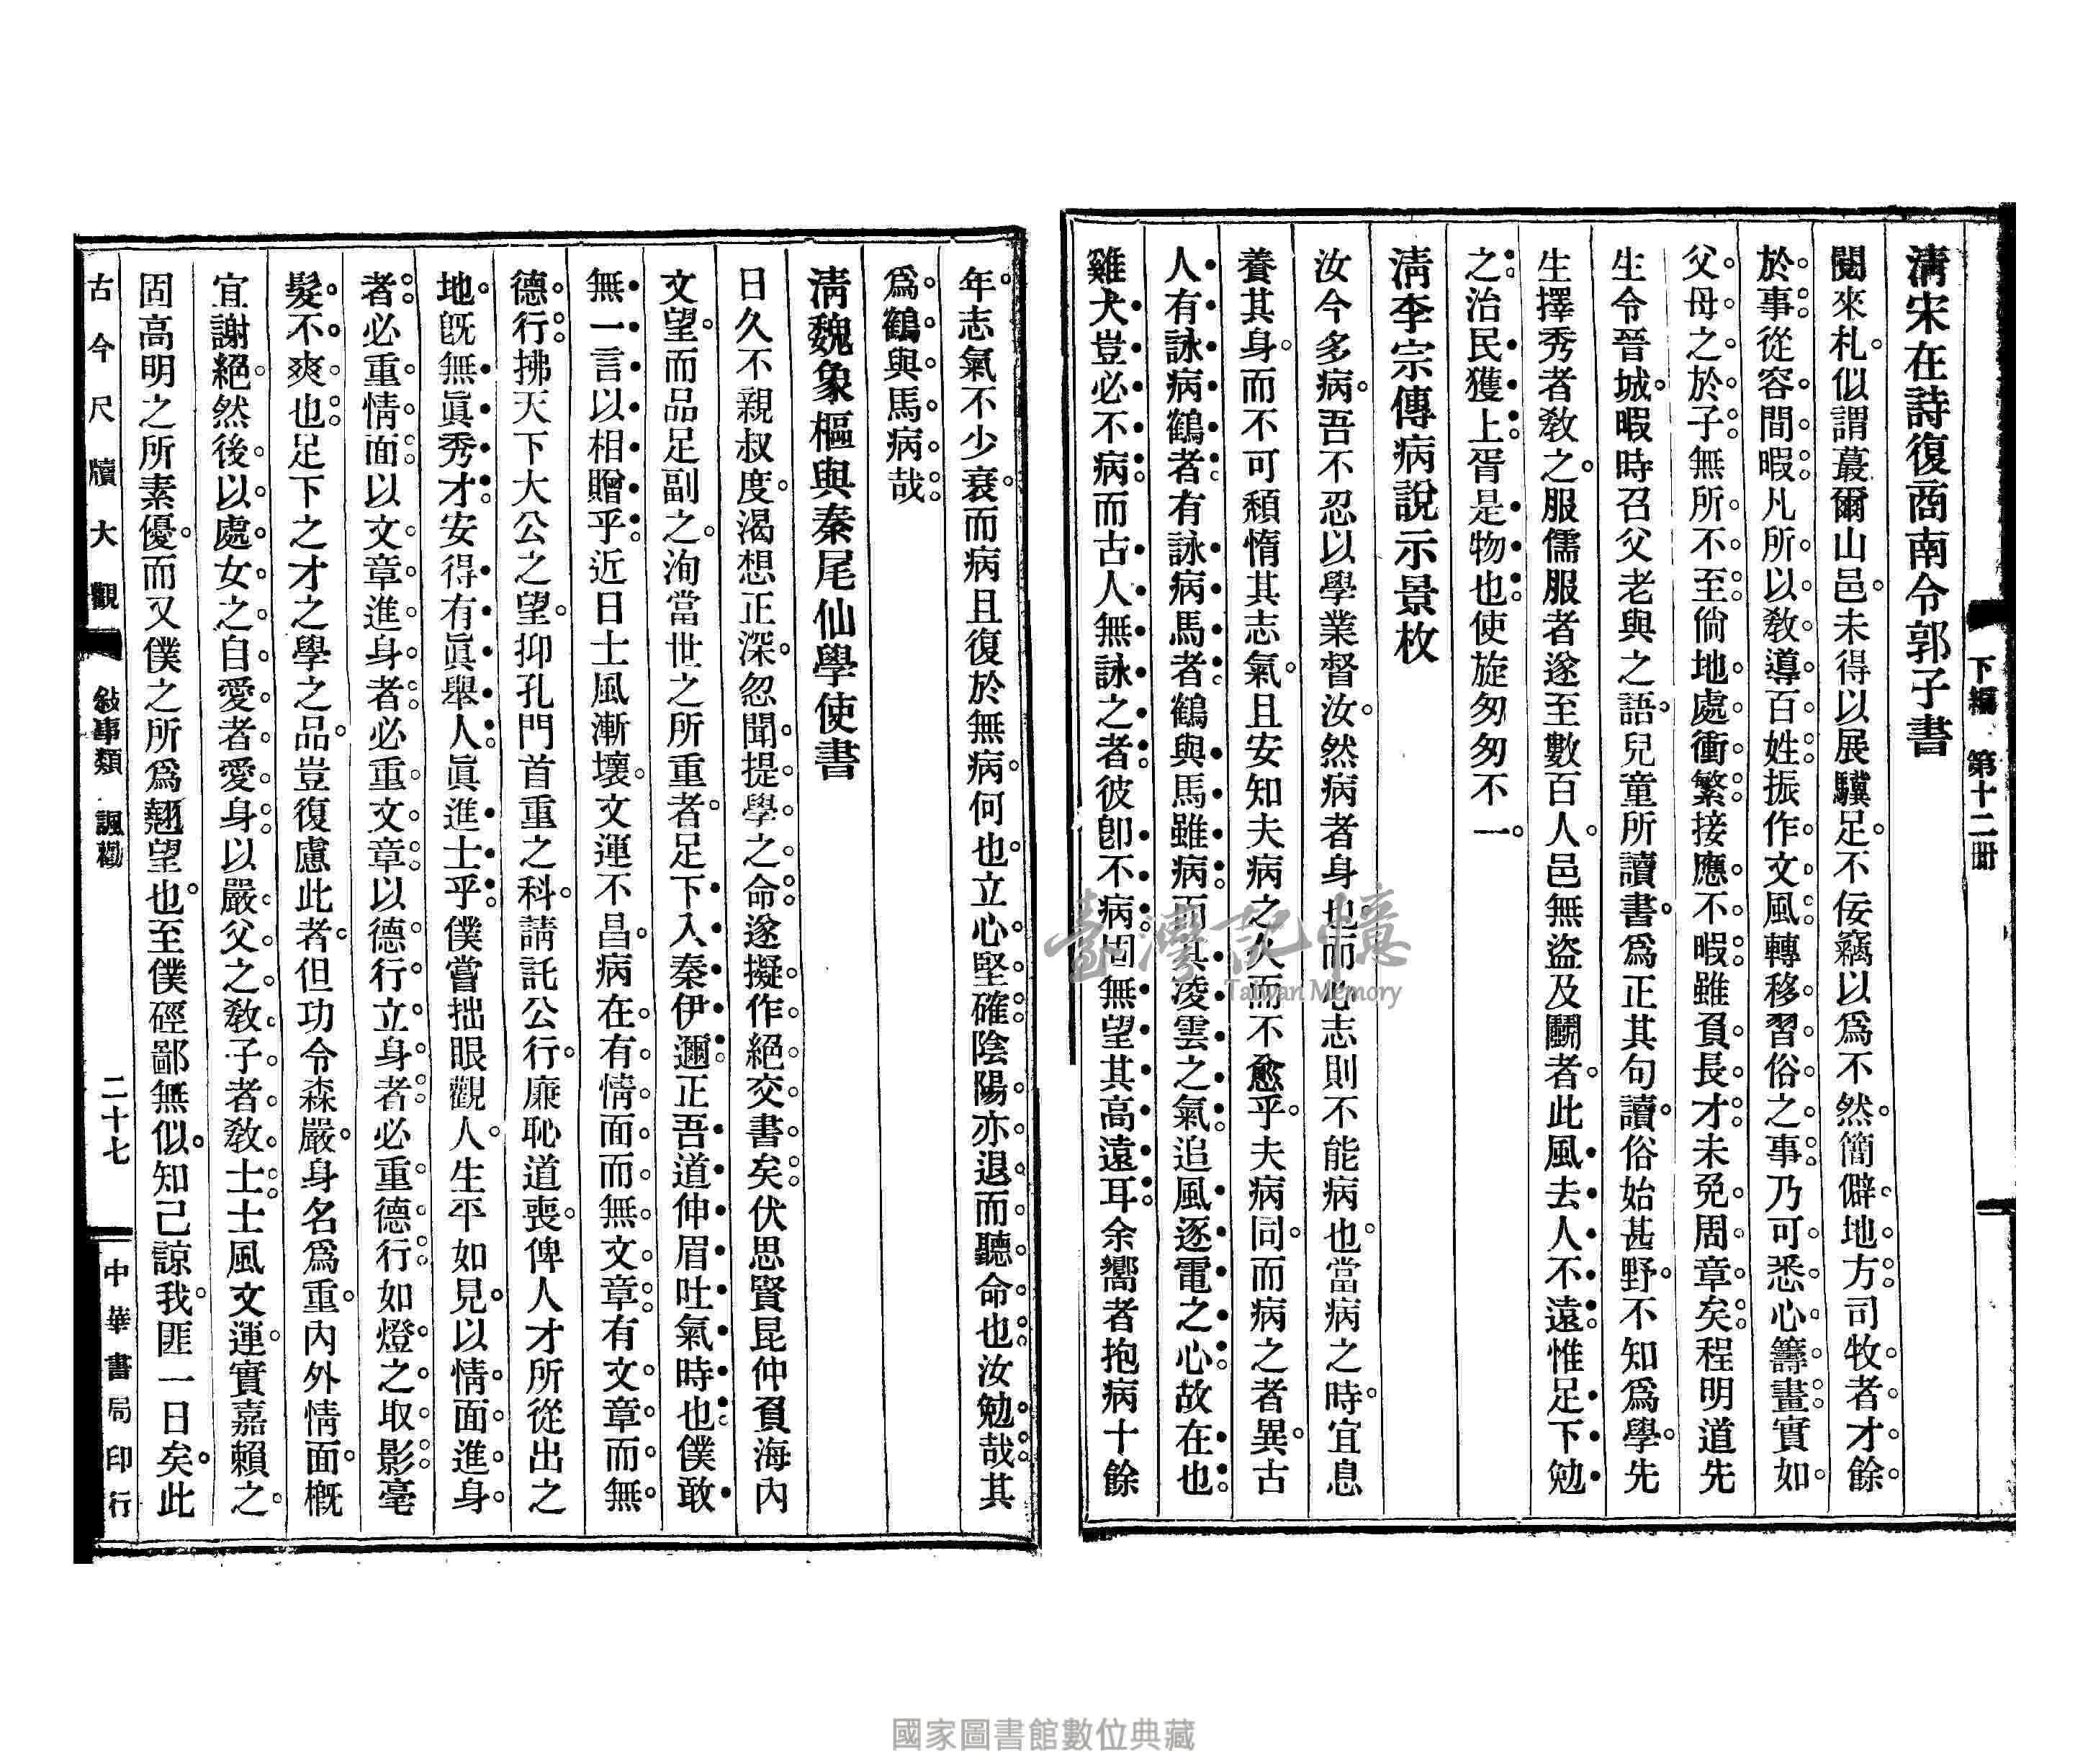 下編 第十二冊
淸宋在詩復商南令郭子書
閱來札。似謂蕞爾山邑。未得以展驥足。不佞竊以爲不然。簡僻地方。司牧者才餘
於事。從容閒暇。凡所以敎導百姓。振作文風。轉移習俗之事。乃可悉心籌畫。實如
父母之於子。無所不至。倘地處衝繁。接應不暇。雖負長才。未免周章矣。程明道先
生令晉城。暇時召父老與之語。兒童所讀書。爲正其句讀。俗始甚野。不知爲學。先
生擇秀者敎之。服儒服者遂至數百人。邑無盜及鬭者。此風去人不遠。惟足下勉
之。治民獲上。胥是物也。使旋匆匆不一。
淸李宗傳病說示景枚
汝今多病。吾不忍以學業督汝。然病者身也。而心志則不能病也。當病之時。宜息
養其身。而不可頹惰其志氣。且安知夫病之久而不愈乎。夫病同。而病之者異。古
人有詠病鶴者。有詠病馬者。鶴與馬雖病。而其凌雲之氣。追風逐電之心故在也。
雞犬豈必不病。而古人無詠之者。彼卽不病。固無望其高遠耳。余嚮者抱病十餘
年。志氣不少衰。而病且復於無病。何也。立心堅確。陰陽亦退而聽命也。汝勉哉。其
爲鶴與馬病哉。
淸魏象樞與秦尾仙學使書
日久不親叔度。渴想正深。忽聞提學之命。遂擬作絕交書矣。伏思賢昆仲負海內
文望。而品足副之。洵當世之所重者。足下入秦伊邇。正吾道伸眉吐氣時也。僕敢
無一言以相贈乎。近日士風漸壞。文運不昌。病在有情面而無文章。有文章而無
德行。拂天下大公之望。抑孔門首重之科。請託公行。廉恥道喪。俾人才所從出之
地。旣無眞秀才。安得有眞舉人眞進士乎。僕嘗拙眼觀人。生平如見。以情面進身
者。必重情面。以文章進身者。必重文章。以德行立身者。必重德行。如燈之取影。毫
髮不爽也。足下之才之學之品。豈復慮此者。但功令森嚴。身名爲重。內外情面。槪
宜謝絕。然後以處女之自愛者愛身。以嚴父之敎子者敎士。士風文運。實嘉賴之。
固高明之所素優。而又僕之所爲翹望也。至僕硜鄙無似。知己諒我。匪一日矣。此
古今尺牘大觀 敍事類 諷勸 二十七 中華書局印行
臺灣記憶
Taiwan Memory
國家圖書館數位典藏